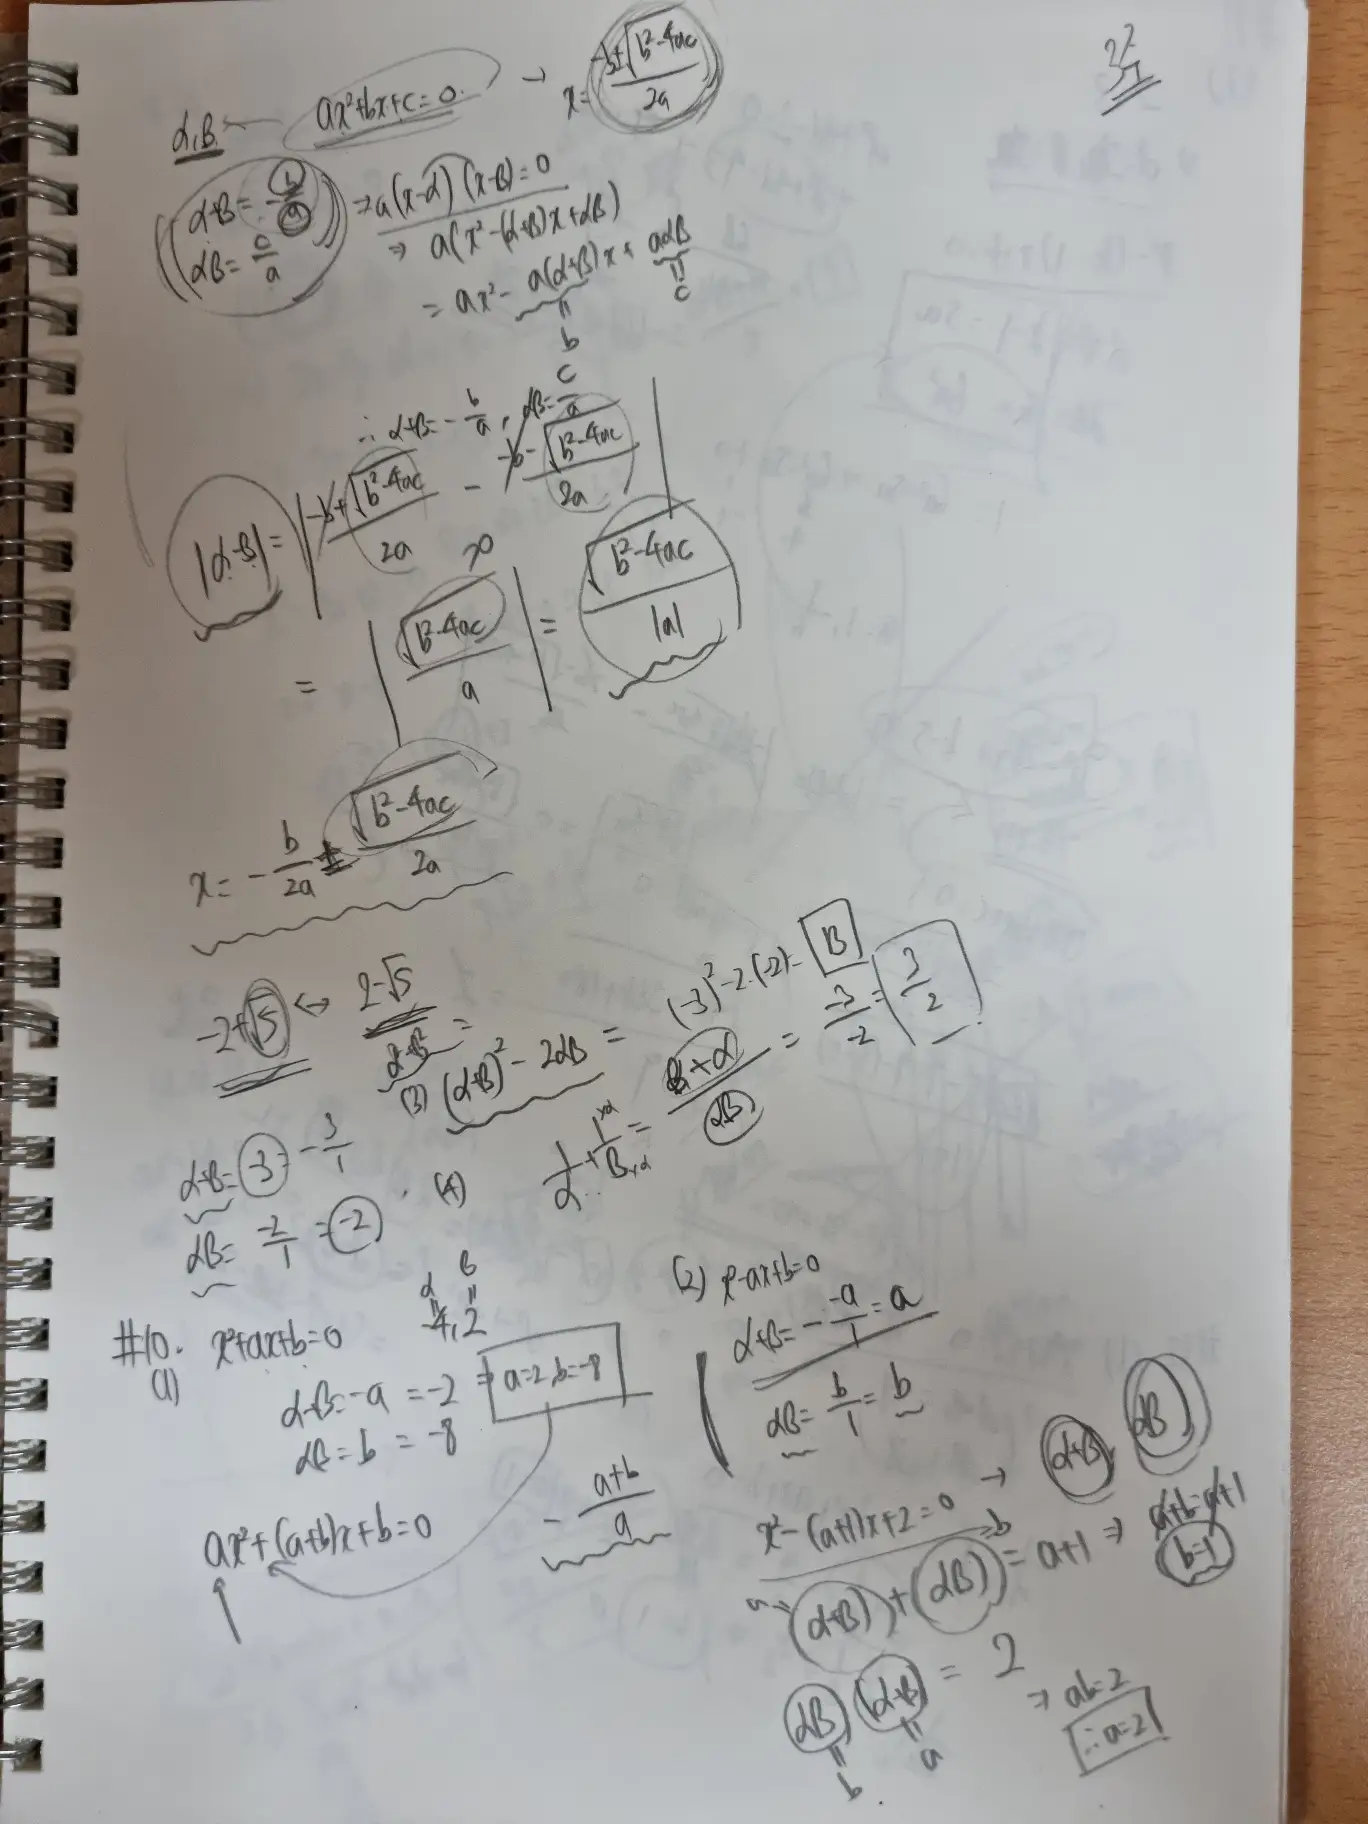 α, β ax²+bx+c=0. → x= -b±√b²-4ac / 2a
α+β= -b/a ⇒ a(x-α)(x-β)=0
αβ= c/a ⇒ a(x²-(α+β)x+αβ)
= ax²- a(α+β)x + aαβ
b c
∴ α+β= - b/a, αβ= c/a
|α-β| = | -b+√b²-4ac / 2a - -b-√b²-4ac / 2a |
= | √b²-4ac / a | = √b²-4ac / |a|
x= - b/2a ± √b²-4ac / 2a
-2+√5 ↔ 2-√5
α²+β² =
(3) (α+β)² - 2αβ = (-3)²-2·(-2)= 13
α+β= -3 = - 3/1
αβ= -2/1 = -2
(4) 1/α + 1/β = β+α / αβ = -3/-2 = 3/2
#10. x²+ax+b=0
α β
-4, 2
(1) α+β=-a = -2 ⇒ a=2, b=-8
αβ = b = -8
ax²+(a+b)x+b=0 - a+b / a
(2) x²-ax+b=0
α+β= - -a/1 = a
αβ= b/1 = b
x²-(a+1)x+2=0 → α+β, αβ
a (α+β)+(αβ) = a+1 ⇒ a+b=a+1
b b=1
αβ (α+β) = 2 ⇒ ab=2
b a ∴ a=2